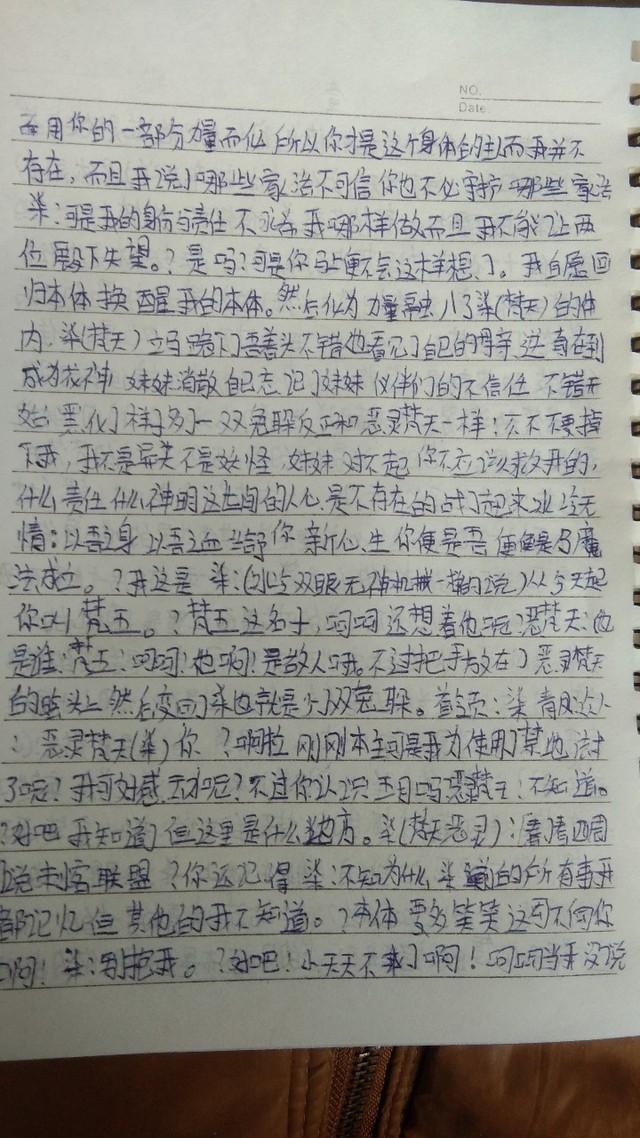 NO.
Date
用你的一部分力量而化所以你才是这个身体的主而我并不
存在,而且我说了哪些家洁不可信你也不必守护哪些家洁
染:可是我的身份与责任不 我哪样做而且我不能让两
位殿下失望。?是吗?可是你马上便不会这样想了。我自愿回
归本体换醒我的本体。然后化为力量融入了染(梵天)的体
内,染(梵天)立马跪下了吾善头不错他看见了自己的母亲 直到
成为花神 妹妹消散自己忘记了妹妹伙伴们的不信任 不错开
始黑化了样子多了一双兔耳朵反正和恶灵梵天一样!不不不要
下我,我不是异类不是妖怪,妹妹对不起你不应该救我的,
什么责任什么神明这世间的人心是不存在的战了起来 无
情:以吾之身以吾之血 你新 生你便是吾 魔
法成立。?我这是 染:( 双眼无神机械一样的说)从今天起
你叫梵五。?梵五这名字,呵呵还想着他呢?恶梵天:他
是谁:梵五:呵呵!他啊!是故人哦。不过把手放在了恶灵梵天
的 头上然后变回了染也就是少了双兔耳朵。首领:染 青
:恶灵梵天(染)你 ?啊啦刚刚本主可是我为使用了禁地
了呢?我可好感 呢?不过你认识 吗恶梵天:不知道。
?好吧我知道了但这里是什么地方。染(梵天恶灵): 看四周
说刺客联盟 ?你还记得 染:不知为什么染 的所有事我
都记忆但其他的我不知道。?本体要多笑笑这可不向你
啊!染:别抱我。?好吧!小天天不 了啊!呵呵当我没说